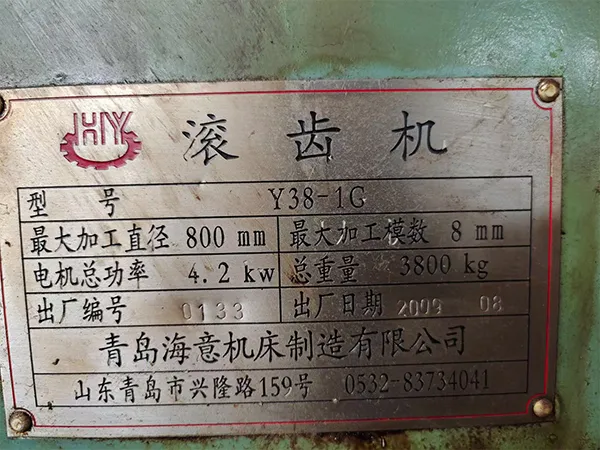 HY 滚齿机
型号 Y38-1G
最大加工直径 800 mm 最大加工模数 8 mm
电机总功率 4.2 kw 总重量 3800 kg
出厂编号 0133 出厂日期 2009 08
青岛海意机床制造有限公司
山东青岛市兴隆路159号 0532-83734041